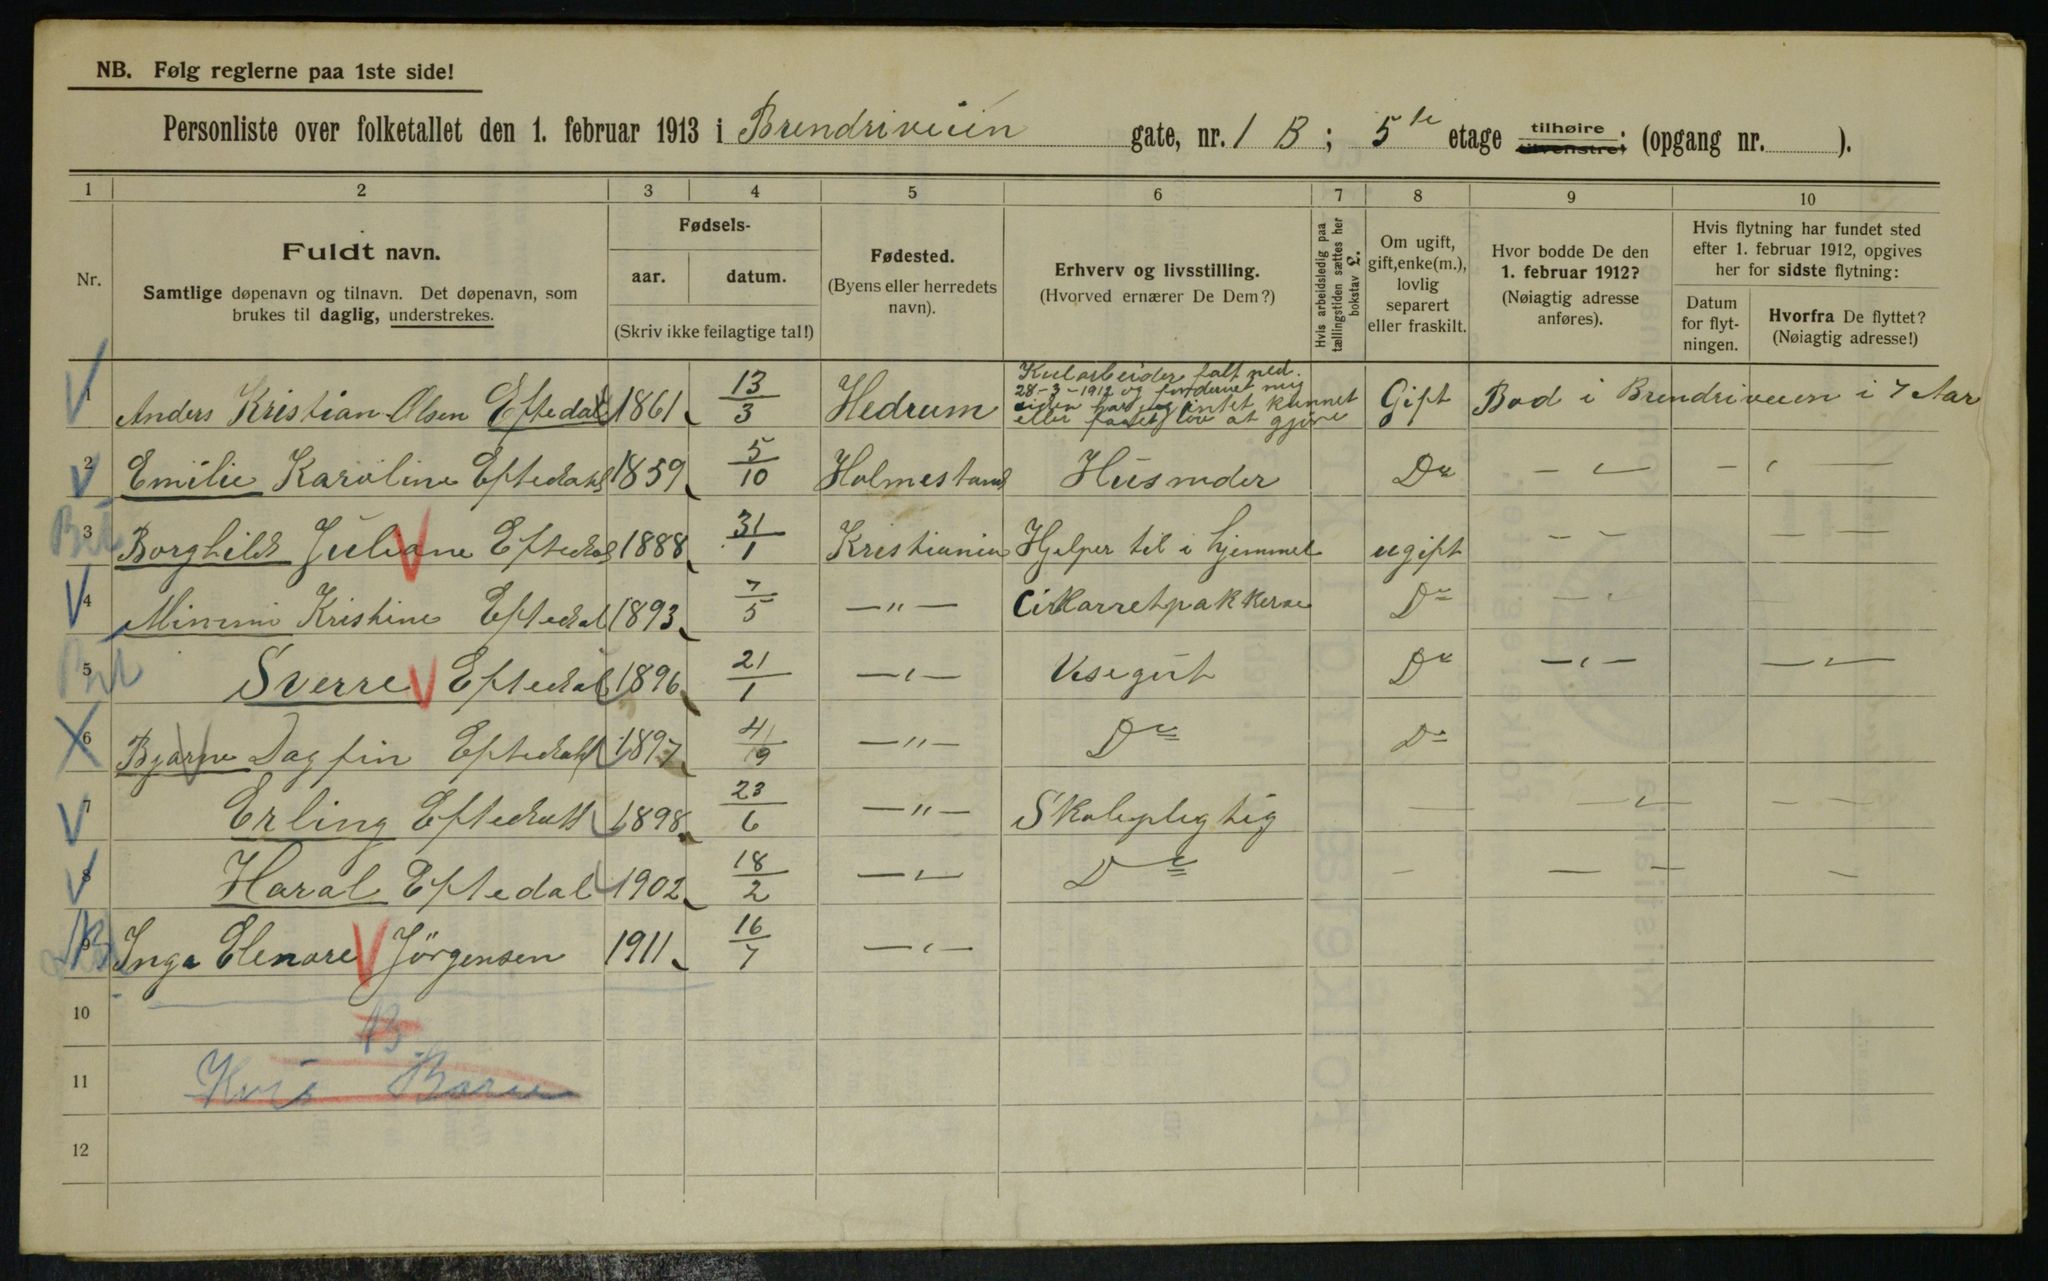 NB. Følg reglerne paa 1ste side!
Personliste over folketallet den 1. februar 1913 i Brendriveien gate, nr. 1 B; 5te etage tilhøire tilvenstre; (opgang nr. ).
1 2 3 4 5 6 7 8 9 10
Nr.
Fuldt navn.
Samtlige døpenavn og tilnavn. Det døpenavn, som
brukes til daglig, understrekes.
Fødsels-
aar. datum.
(Skriv ikke feilagtige tal!)
Fødested.
(Byens eller herredets
navn).
Erhverv og livsstilling.
(Hvorved ernærer De Dem?)
Hvis arbeidsledig paa
tællingstiden sættes her
bokstav L.
Om ugift,
gift, enke(m.),
lovlig
separert
eller fraskilt.
Hvor bodde De den
1. februar 1912?
(Nøiagtig adresse
anføres).
Hvis flytning har fundet sted
efter 1. februar 1912, opgives
her for sidste flytning:
Datum
for flyt-
ningen.
Hvorfra De flyttet?
(Nøiagtig adresse!)
Kularbeider falt ned.
28-3-1912 og fordervet mig
siden har jeg intet kunnet
eller faaet lov at gjøre
1 Anders Kristian Olsen Eftedal 1861 13/3 Hedrum Gift Bod i Brendriveien i 7 Aar
2 Emilie Karoline Eftedahl 1859 5/10 Holmestand Husmoder Do — " — — " —
3 Borghild Juliane Eftedal 1888 31/1 Kristiania Hjelper til i hjemmet ugift — — — —
4 Mimmi Kristine Eftedal 1893 7/5 — " — Cikarretpakkerse Do — " — —
5 Sverre Eftedal 1896 21/1 — " — Visegut Do — " — — " —
6 Bjarne Dagfin Eftedahl 1897 4/9 — " — Do Do
7 Erling Eftedahl 1898 23/6 — " — Skolepligtig — — " — — —
8 Haral Eftedal 1902 18/2 — " — Do — — — —
9 Inga Elenore Jörgensen 1911 16/7 — " —
10
11
12